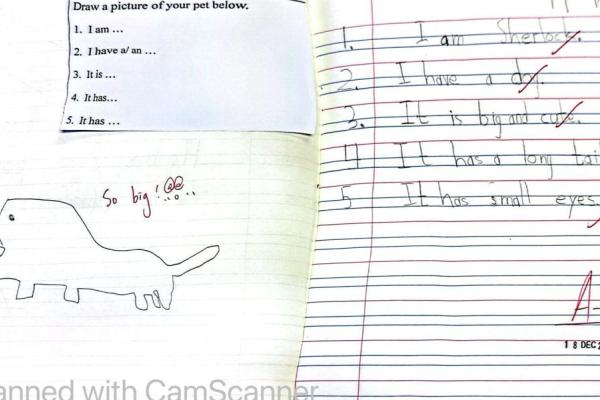 Draw a picture of your pet below.
1. I am ...
2. I have a/ an ...
3. It is ...
4. It has...
5. It has ...
So big!
1. I am Sherlock.
2. I have a dog.
3. It is big and cute.
4 It has a long tai
5 It has small eyes.
A-
18 DEC 2
anned with CamScanner